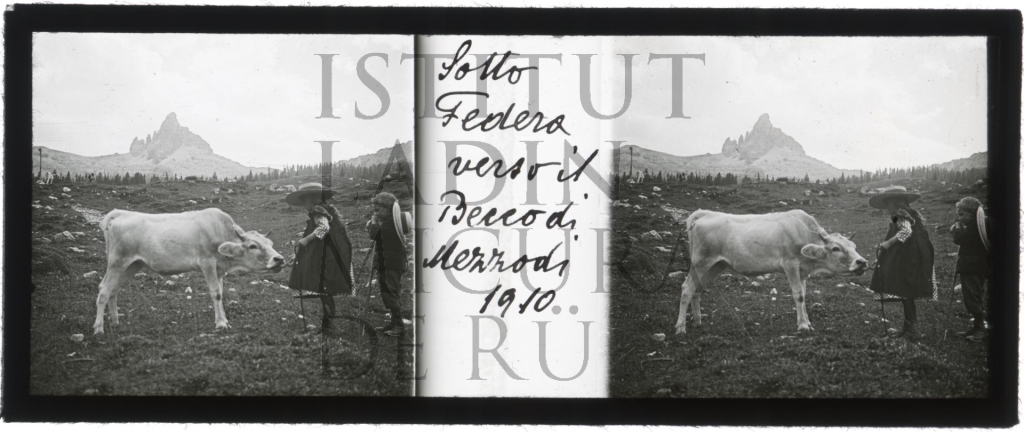 Sotto
Federa
verso il
Becco di
Mezzodi
1910
ISTITUT
LADIN
MICURÁ
DE RÜ